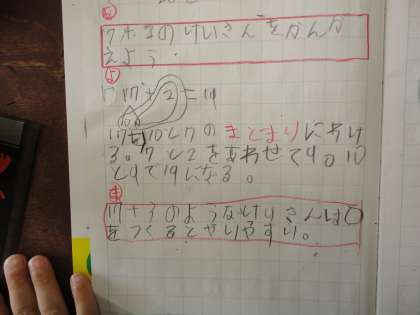 17+3のけいさんをかんが
えよう。
17+2=19
17を10と7のまとまりにわけ
る。7と2をあわせて9。10
と9で19になる。
17+3のようなけいさんは○
をつくるとやりやすい。